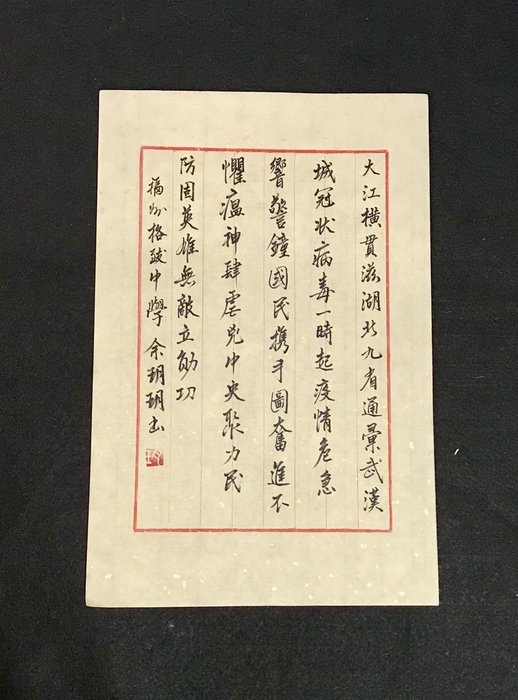 大江橫貫滋湖北九省通彙武漢
城冠状病毒一時起疫情危急
響警鐘國民携手圖奮進不
懼瘟神肆虐兇中央聚力民
防固英雄無敵立勛功
福州格致中學余玥玥书